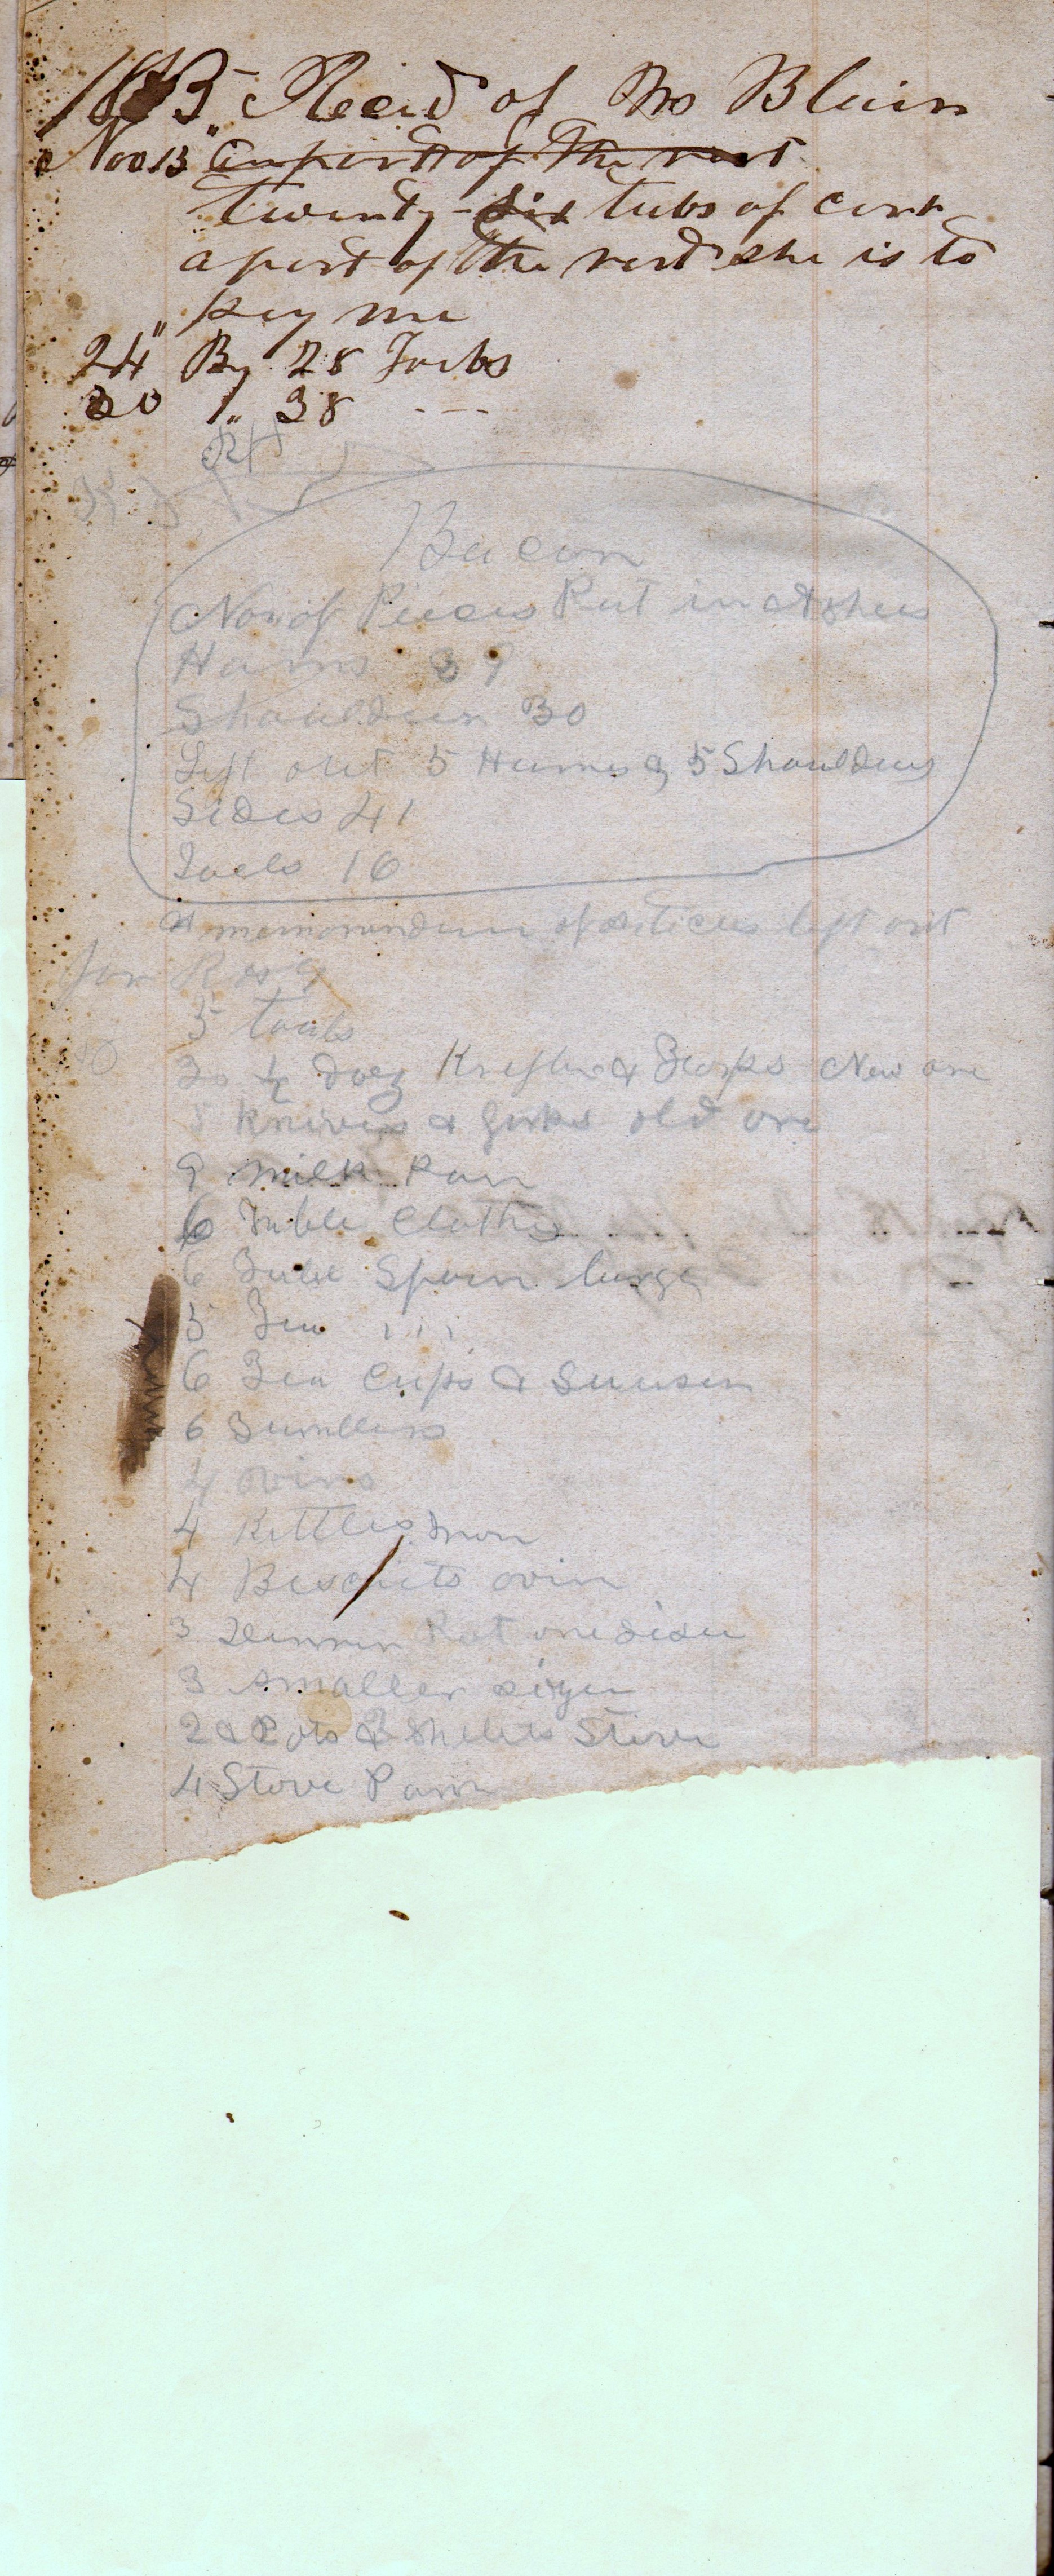 Recd of Mrs Blain
Nov 13" a part of the rent
twenty - six tubs of corn
a part of the rent she is to
pay me
24" By 28 Tubs
30 1" 38 ---
Bacon
No of Pieces Put in Ashes
Hams 39
Shoulders 30
Left out 5 Hams & 5 Shoulders
Sides 41
Joels 16
A memorandum of articles left out
for
5
½ Doz Knifes & Forks New one
Knives & forks old one
9 Milk Pan
6 Table Cloths
6 Table Spoon large
5 Tea " " "
6 Tea Cups & Sausers
6 Tumblers
4 ovins
4 Kittles Iron
4 Biscuits ovin
3 Dinner Pot one size
3 smaller size
2 Pots & Skelets Stove
4 Stove Pans